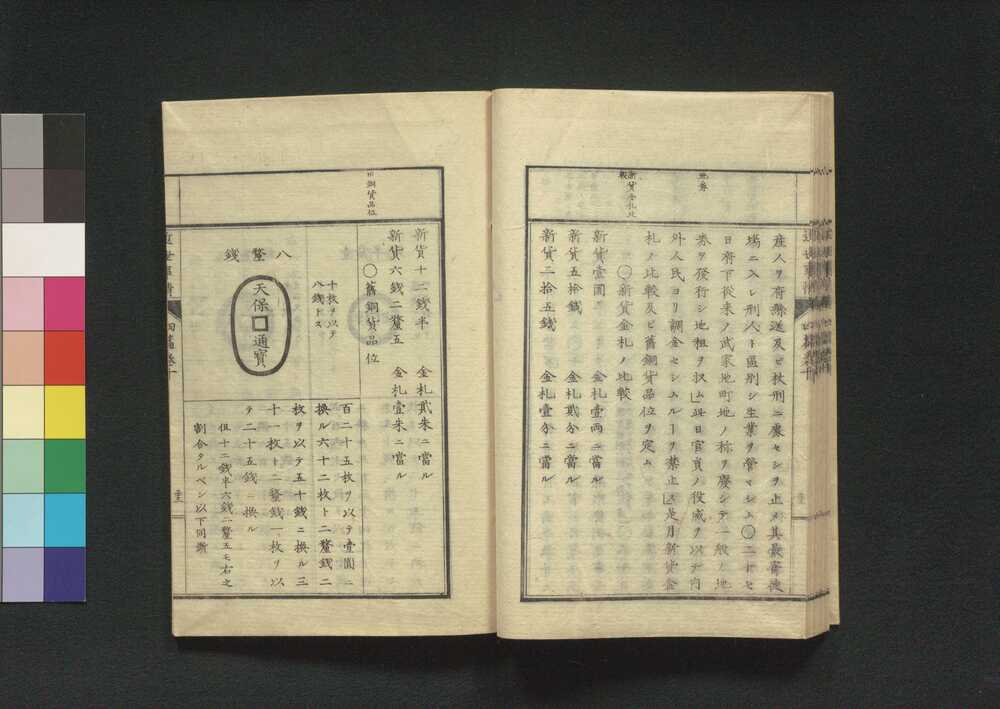 地券
新貨金札比
較
産人ヲ府縣送及ビ杖刑ニ處セシヲ止メ其最寄徒
塲ニ入レ刑人ト區別シ生業ヲ營マシム〇二十七
日府下從來ノ武家地町地ノ称ヲ廢シテ一般ノ地
券ヲ發行シ地租ヲ収ム此日官員ノ役威ヲ以テ内
外人民ヨリ調金セシムルヿヲ禁止ス是月新貨金
札ノ比較及ビ舊銅貨品位ヲ定ム
〇新貨金札ノ比較
新貨壹圓 金札壹兩ニ當ル
新貨五拾錢 金札貳分ニ當ル
新貨二拾五錢 金札壹分ニ當ル
銅貨品位
新貨十二錢半 金札貳朱ニ當ル
新貨六錢二釐五 金札壹朱ニ當ル
〇舊銅貨品位
十枚ヲ以テ
八錢トス
八釐錢
天保通寶
百二十五枚ヲ以テ壹圓ニ
換ル六十二枚ト二釐錢二
枚ヲ以テ五十錢ニ換ル三
十一枚ト二釐錢一枚ヲ以
テ二十五錢ニ換ル
但十二錢半六錢二釐五モ右之
割合タルベシ以下同斷
四篇卷十